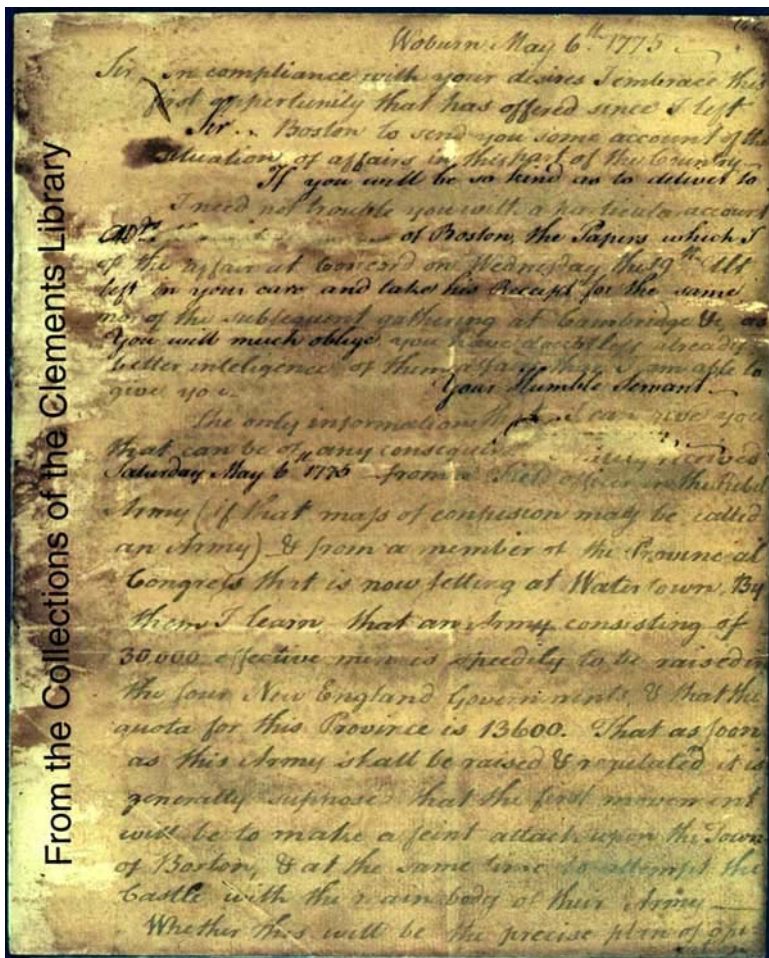 Woburn May 6th 1775
Sir In compliance with your desires I embrace this
first opportunity that has offered since I left
Sir Boston to send you some account of the
situation of affairs in this part of the Country
If you will be so kind as to deliver to
I need not trouble you with a particular account
of Boston, the Papers which I
of the affair at Concord on Wednesday the 19th Ult
left in your care and take his Receipt for the same
nor of the subsequent gathering at Cambridge &c, as
You will much oblige you have doubtless already
better inteligence of them than I am able to
give you. Your Humble Servant
The only information that I can give you
that can be of any consequence received
Saturday May 6th 1775 from a Field officer in the Rebel
Army (if that mass of confusion may be called
an Army) & from a member of the Provincial
Congress that is now setting at Watertown. By
them I learn, that an Army consisting of
30.000 effective men is speedily to be raised in
the four New England Governments, & that the
quota for this Province is 13600. That as soon
as this Army shall be raised & regulated it is
generally suppose that the first movement
will be to make a feint attack upon the Town
of Boston, & at the same time to attempt the
Castle with the main body of their Army
Whether this will be the precise plan of ope
From the Collections of the Clements Library